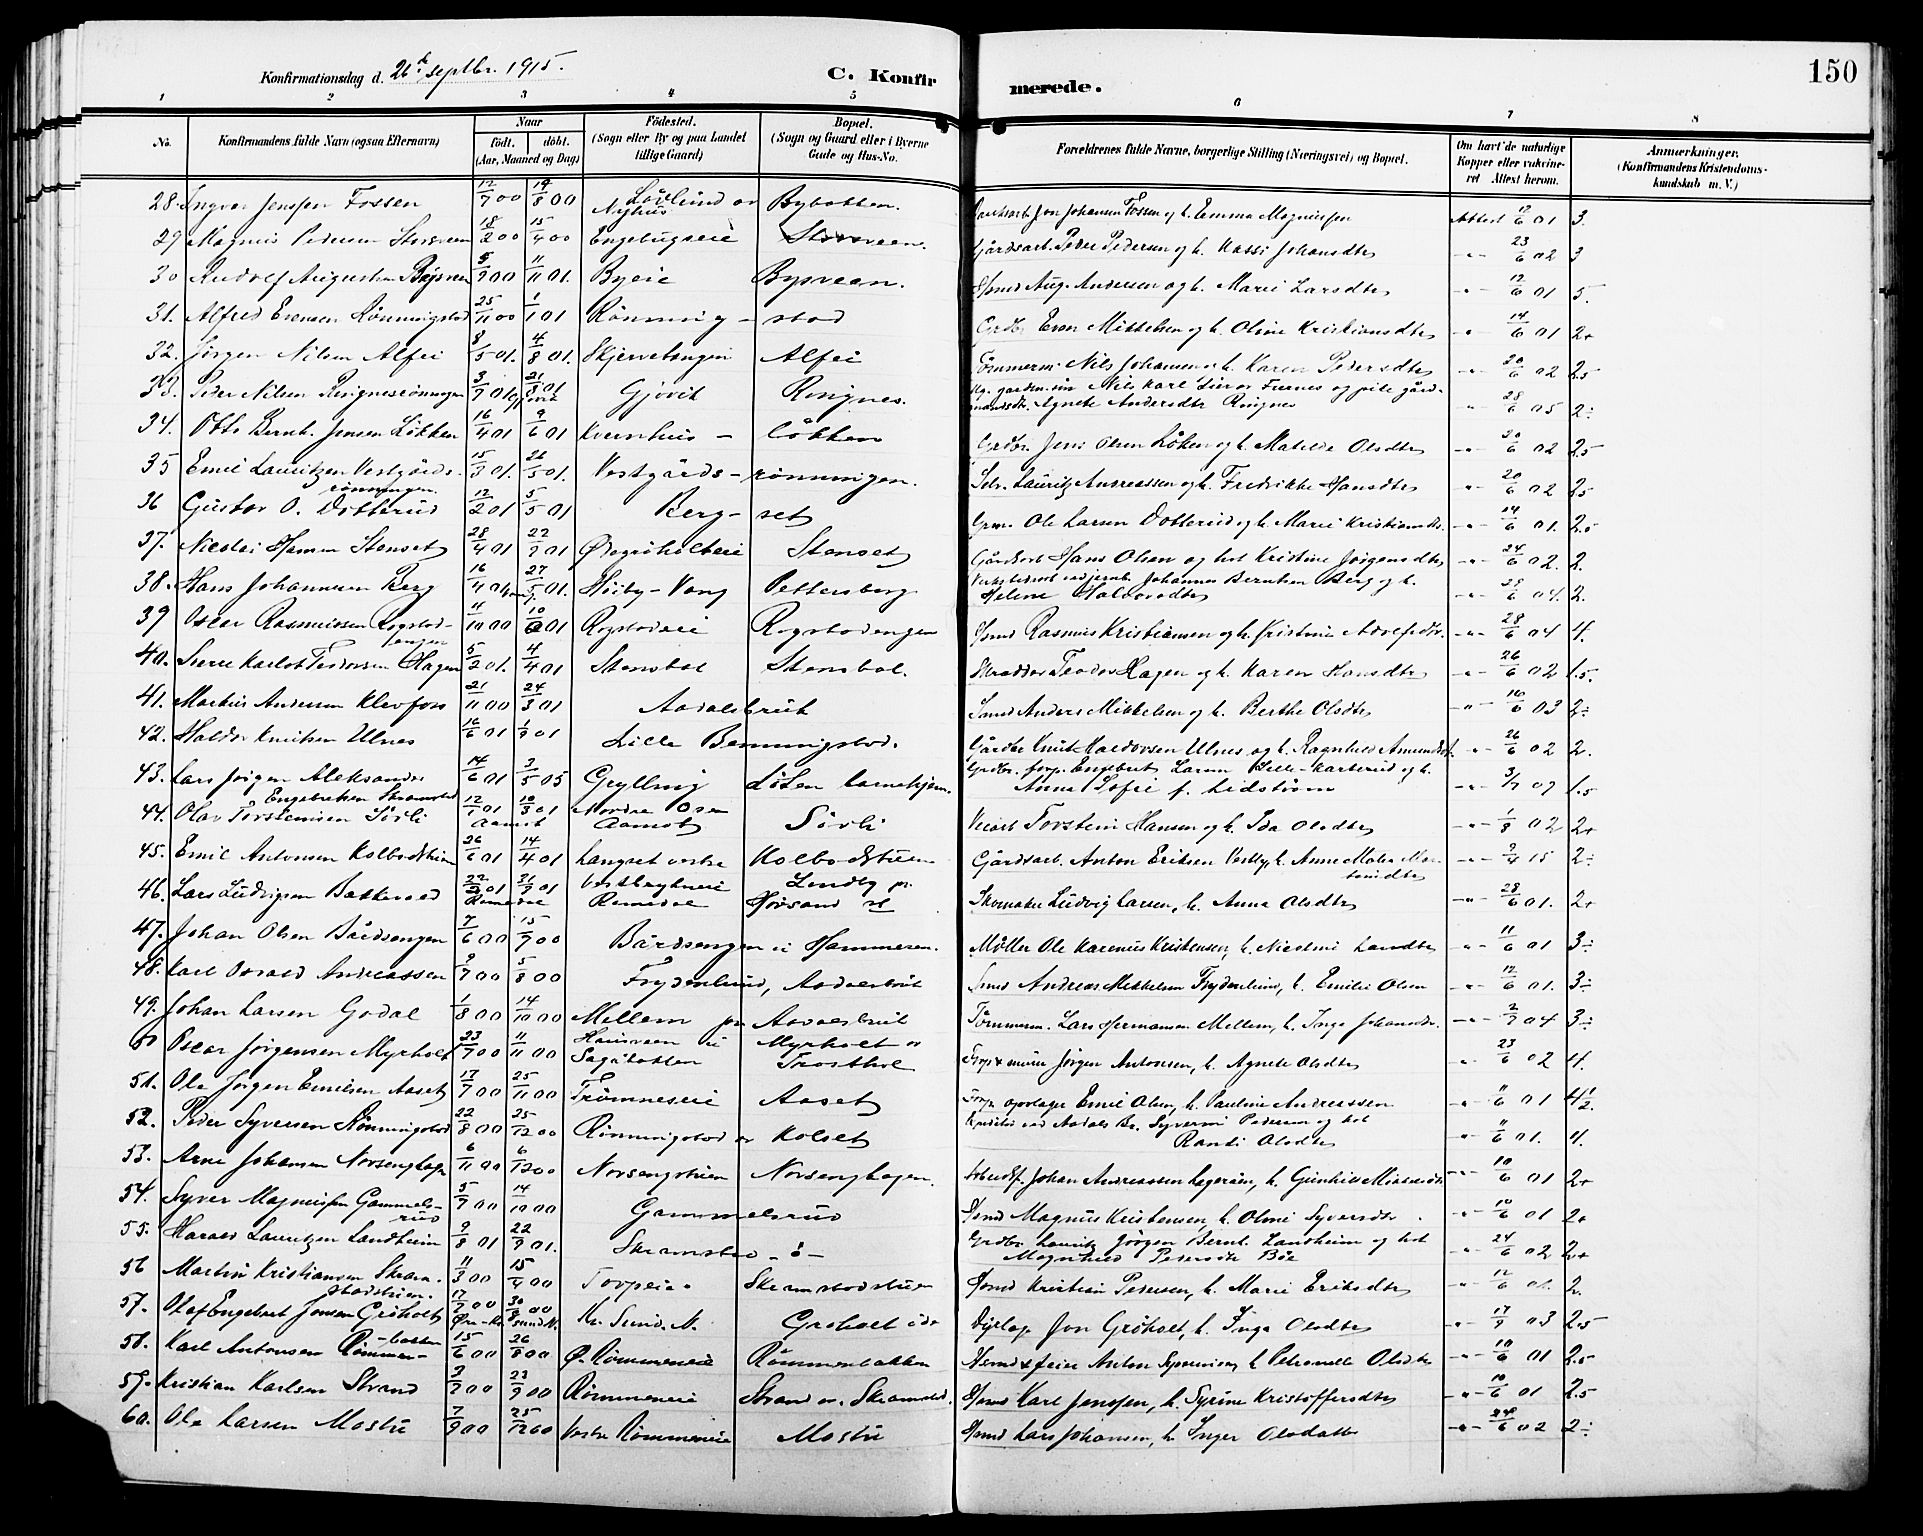 150
Konfirmationsdag d. 26de septbr. 1915.
C. Konfir
merede.
1 2 3 4 5 6 7 8
No.
Konfirmandens fulde Navn (ogsaa Efternavn)
Naar
født. døbt.
(Aar, Maaned og Dag)
Fødested.
(Sogn eller By og paa Landet
tillige Gaard)
Bopæl.
(Sogn og Gaard eller i Byerne
Gade og Hus-No.
Forældrenes fulde Navne, borgerlige Stilling (Næringsvei) og Bopæl.
Om havt de naturlige
Kopper eller vakcine-
ret Attest herom.
Anmærkninger.
(Konfirmandens Kristendoms-
kundskab m. V.)
28. Ingvar Jenssen Fossen 12/7 00 19/8 00 Nyhus Bybakken. Jon Johansen Fossen og h. Emma Magnussen Attest 12/6 01 3.
29 Magnus Pedersen Storsveen 18/2 00 15/4 00 Engelaugseie Storsveen. Gårdsarb. Peder Pedersen og h. Kassi Johansdtr -"- 23/6 02 3
30 Rudolf Augustsen Bysveen 5/9 00 11/11 01. Byeie Bysveen. Hsmd Aug. Andersen og h. Marie Larsdtr -"- 12/6 01 5.
31. Alfred Evensen Rønningstad 25/11 00 1/1 01 Rønning - stad Grdbr Even Mikkelsen og h. Oline Kristiansdtr -"- 14/6 01 2+
32. Jørgen Nilsen Alfei 8/5 01. 4/8 01. Skjervelangen Alfei Tømmerm. Nils Johansen og h. Karen Pedersdtr -"- 20/6 02 2.5
33. Peder Nilsen Ringnesrønningen 3/7 01 21/8 01 Gjøvik Gjøvik Ringnes. Nils Karl Furnes og pike gård-
mandsdtr. Agnete Andersdtr Ringnes -"- 28/6 05 2÷
34. Otto Bernh. Jensen Løkken 16/4 01 9/6 01 Kvernhus - løkken Grdbr. Jens Olsen Løken og h. Matilde Olsdtr -"- 20/6 02 2.5
35 Emil Lauritzen Vestgårds-
rønningen. 15/3 01. 26/5 01. Vestgårds - rønningen. Selv. Lauritz Andreassen og h. Fredrikke Hansdtr -"- 20/6 02 2.5
36 Gustav O. Dotterud 12/2 01 5/5 01 Berg - set Grm. Ole Larsen Dotterud og h. Marie Kristiansdtr. -"- 14/6 01. 2.5
37. Nicolai Hansen Stenset 28/4 01 22/9 01 Ødegårholteie Stenset Gårdsarb Hans Olsen og hst Kristine Jørgensdtr -"- 24/6 02. 2.
38. Hans Johannesen Berg 16/4 01 27/5 01. Vang. Høiby - Vang Pettersberg Johannes Berntsen Berg og h.
Helene Halvorsdtr -"- 28/6 04. 2.
39 Oscar Rasmussen Rogstad-
engen 11/10 00 10/6 01 Rogstadeie Rogstadengen Hsmd Rasmus Kristiansen og h. Kristine Adolfsdtr. -"- 28/6 04 4.
40. Sverre Karlot Teodorsen Hagen 5/2 01. 4/4 01 Stensbøl Stensbøl. Skrædder Teodor Hagen og h. Karen Hansdtr -"- 26/6 02 1.5
41. Markus Andersen Klevfoss 21/11 00 24/3 01 Aadalsbruk Smed Anders Mikkelsen og h. Berthe Olsdtr -"- 10/6 03 2÷
42. Haldor Knutsen Ulnes 16/6 01 1/9 01 Lille Benningstad. Gårdbr Knut Haldorsen Ulnes og h. Ragnhild Amundsdtr. -"- 26/6 02 2.
43. Lars Jørgen Aleksander
Engebretsen Skramstad 14/6 01 3/5 05 Grylling Løten barnehjem. Grdbr. forp. Engebret Larsen Lille-Karterud og h.
Anna Sofie f. Lidstrøm -"- 3/7 07 1.5
44. Olav Torsteinsen Sørli 12/1 01 10/3 01 Aamot Nordre Osen
Aamot Sørli Veiarb Torstein Hansen og h. Ida Olsdtr -"- 1/8 02 2+
45. Emil Antonsen Kolbodstuen 26/6 01 14/4 01 Langset vestre Kolbodstuen Gårdsarb. Anton Eriksen Vestby, h. Anne Matea Mor-
tensdtr -"- 9/4 15 2÷
46. Lars Ludvigsen Bakkerud 22/2 01 21/9 01 Romedal Romedal Lundby pr
Hørsand st Skomaker Ludvig Larsen, h. Anna Olsdtr -"- 28/6 01. 2+
47. Johan Olsen Bårdsengen 7/6 00 15/7 00 Bårdsengen u Hammeren. Møller Ole Karenius Kristensen, h. Nicoline Larsdtr -"- 11/6 01 3÷
48. Karl Osvald Andreassen 9/7 00 5/8 00 Frydenlund, Aadalsbruk Smed Andreas Mikkelsen Frydenlund, h. Emilie Olsen -"- 12/6 01. 3÷
49. Johan Larsen Godal 1/8 00 14/10 00 Mellem pr Aadalsbruk Tømmerm. Lars Hermansen Mellem, h. Inga Johansdtr. -"- 2/7 04 3÷
50 Oscar Jørgensen Myrholt 23/7 00 11/11 00 Hansveen u
Sagabakken Myrholt u
Trosthol Forp. & murer Jørgen Antonsen, h. Agnete Olsdtr -"- 23/6 02 4.
51. Ole Jørgen Emilsen Aaset 17/7 00 25/11 00 Trømneseie Aaset Forp. Emil Olsen, h. Pauline Andreassen -"- 11/6 01 4½.
52. Peder Syversen Rønningstad 22/8 00 25/12 00 Rønningstad u Kolset Aadals Br. Syverin Pedersen og hst
Randi Olsdtr -"- 11/6 01. 4.
53. Arne Johansen Norsenghagen 6/11 00 6/12 00 Norsengstuen Norsenghagen. Johan Andreassen Lageråen, h. Gunhild Mikkelsdtr -"- 10/6 01 2+
54. Syver Magnussen Gammels-
rud 5/7 00 14/10 00 Gammelsrud Hsmd Magnus Kristensen, h. Oline Syversdtr -"- 12/6 01 2+
55. Harald Lauritzen Landheim 9/8 01 22/9 01. Skramstad - ö - Grdbr Lauritz Jørgen Bernt Landheim og hst
Magnhild Pedersdtr Bøe -"- 24/6 02 2+
56 Martin Kristiansen Skram-
stadstuen. 11/3 00 15/4 00 Torpeie Skramstadstuen Hsmd Kristian Pedersen, h. Marie Eriksdtr -"- 12/6 01. 2.
57. Olaf Engebret Jonsen Grøholt 17/7 00 30/9 00 Kr. Sund N. Grøholt Jon Grøholt, h. Inga Olsdtr -"- 17/9 03 2.5
58. Karl Antonsen Rømmen-
bakken 15/6 00 26/8 00 Ø. Rømmeneie Rømmenbakken Hsmd & feier Anton Syversen, h Petronelle Olsdtr -"- 10/6 01 2.5
59. Kristian Karlsen Strand 3/7 00 23/9 00 Rømmeneie Strand u. Skramstad. Hsmd Karl Jenssen, h. Syrine Kristoffersdtr -"- 10/6 01 2.5
60. Ole Larsen Mostu 7/9 00 25/12 00 Vestre Rømmeneie Mostu Hsmd Lars Johansen, h Inger Olsdatter -"- 24/6 02 2÷